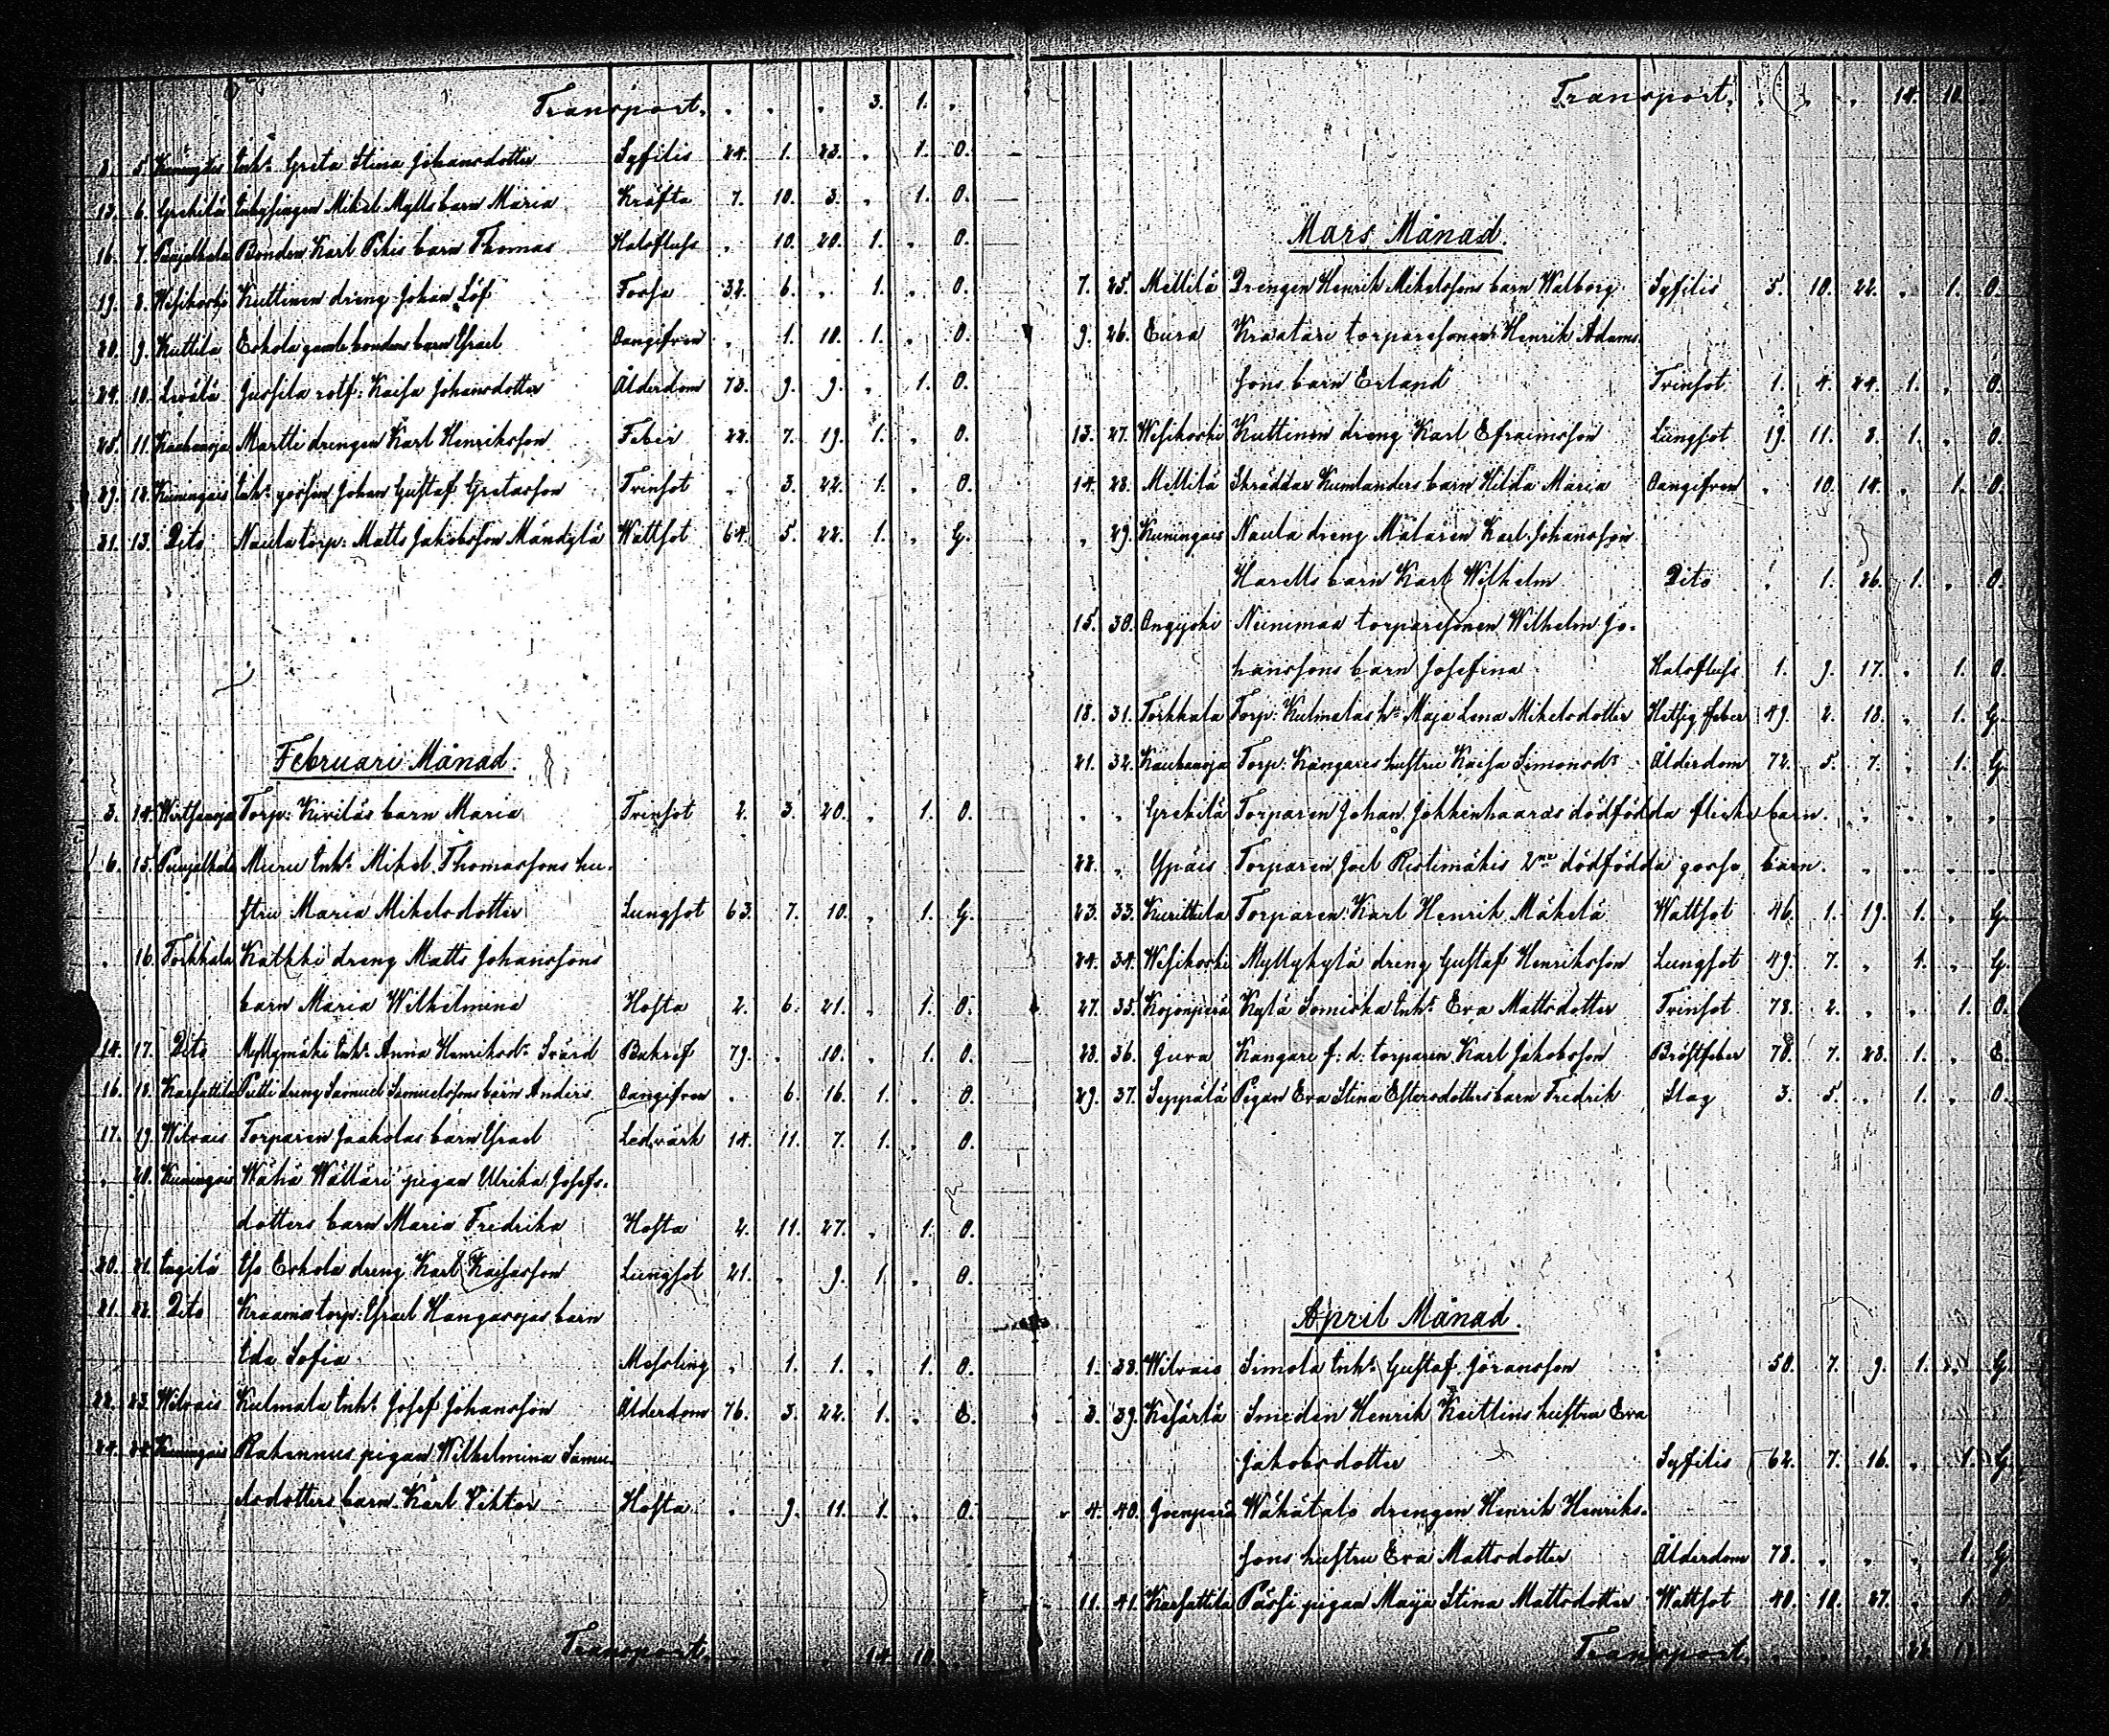 Transport. „ „ „ 3. 1. „
8. 5. Kuningais Inh:s Greta Stina Johansdotter Syfilis 24. 1. 23. „ 1. O.
13. 6. Grekilä Inhysingen Mikel Mylls barn Maria Kräfta 7. 10. 3. „ 1. O.
16. 7. Karl Pihis barn Thomas Halsfluss „ 10. 20. 1. „ O.
19. 8. Wesikoski Kuttinen dreng Johan Löf Fossa 32. 6. „ 1. „ O.
20. 9. Kuttila Eskola gamle bondens barn Israel Oangifven „ 1. 18. 1. „ O.
24. 10. Jussila rotf: Kaisa Johansdotter Ålderdom 73. 9. 9. „ 1. O.
25. 11. Kauhanoja Martti drengen Karl Henriksson Feber 22. 7. 19. 1. „ O.
29. 12. Kuningais Inh:s gossen Johan Gustaf Gretasson Tvinsot „ 3. 22. 1. „ O.
31. 13. Dito Naula torp: Matts Jakobsson Mändylä Wattsot 64. 5. 22. 1. „ G.
Februari Månad.
3. 14. Wirtsanoja Torp: Kiviläs barn Maria Tvinsot 2. 3. 20. „ 1. O.
6. 15. Muru Inh:s Mikel Thomassons hu-
stru Maria Mikelsdotter Lungsot 63. 7. 10. „ 1. G.
„ 16. Torkkala Katkki dreng Matts Johanssons
barn Maria Wilhelmina Hosta 2. 6. 21. „ 1. O.
14. 17. Dito Myllymäki Inh:s Anna Henriksd:r Svärd Bukref 79. „ 10. „ 1. O.
16. 18. Karsattila Pietti dreng Samuel Samuelssons barn Anders Oangifven „ 6. 16. 1. „ O.
17. 19. Wilvais Torparen Jaakolas barn Israel Ledvärk 14. 11. 7. 1. „ O.
„ 20. Kuningais Wähä Wälläri pigan Ulrika Josefs-
dotters barn Maria Fredrika Hosta 2. 11. 27. „ 1. O.
20. 21. Ingilä Iso Eskola dreng Karl Kaisasson Lungsot 21. „ 9. 1. „ O.
21. 22. Dito Kraamo torp: Israel Hangasojas barn
Ida Sofia Messling „ 1. 1. „ 1. O.
22. 23. Wilvais Kulmala Inh:s Josef Johansson Ålderdom 76. 3. 22. 1. „ E.
24. 24. Kuningais Rahennus pigan Wilhelmina Samu-
elsdotters barn Karl Viktor Hosta „ 9. 11. 1. „ O.
Transport. „ „ „ 14. 10. „
Transport. „ „ „ 14. 10.
Mars Månad.
7. 25. Mellilä Drengen Henrik Mikelssons barn Walborg Syfilis 5. 10. 22. „ 1. O.
9. 26. Eura Kraatari torparesonen Henrik Adams-
sons barn Erland Tvinsot 1. 4. 24. 1. „ O.
13. 27. Wesikoski Kuttinen dreng Karl Efraimsson Lungsot 19. 11. 8. 1. „ O.
14. 28. Mellilä Skräddar Kumlanders barn Hilda Maria Oangifven „ 10. 14. „ 1. O.
„ 29. Kuningais Naula dreng Målaren Karl Johansson
Harells barn Karl Wilhelm Dito „ 1. 26. 1. „ O.
15. 30. Niinimaa torparesonen Wilhelm Jo-
hanssons barn Josefina Halsfluss 1. 9. 17. „ 1. O.
18. 31. Torkkala Torp: Kulmalas h:u Maja Lena Mikelsdotter Hetsig feber 49. 2. 18. „ 1. G.
21. 32. Kauhanoja Torp: Kangares hustru Kaisa Simonsd:r Ålderdom 72. 5. 7. „ 1. G.
„ „ Grekilä Torparen Johan Jokkenhaaras dödfödda flicke barn. „ „ „
22. „ Ypäis Torparen Joel Ristimäkis 2:ne dödfödda gosse barn. „ „ „
23. 33. Kurittula Torparen Karl Henrik Mäkelä Wattsot 46. 1. 19. 1. „ G.
24. 34. Wesikoski Myllykylä dreng Gustaf Henriksson Lungsot 49. 7. „ 1. „ G.
27. 35. Kojonperä Kylä Somiska Inh:s Eva Mattsdotter Tvinsot 78. 2. „ „ 1. O.
28. 36. Juva Kangare f: d: torparen Karl Jakobsson Bröstfeber 78. 7. 28. 1. „ E.
29. 37. Seppälä Pigan Eva Stina Estersdotters barn Fredrik Slag 3. 5. „ 1. „ O.
April Månad.
1. 38. Wilvais Simola Inh:s Gustaf Göransson 50. 7. 9. 1. „ G.
3. 39. Kesärlä Smeden Henrik Keitlins hustru Eva
Jakobsdotter Syfilis 62. 7. 16. „ 1. G.
4. 40. Wähätalo drengen Henrik Henriks-
sons hustru Eva Mattsdotter Ålderdom 78. „ „ „ 1. G.
11. 41. Karsattila Pässi pigan Maja Stina Mattsdotter Wattsot 40. 10. 27. „ 1. O.
Transport. „ „ „ 22.